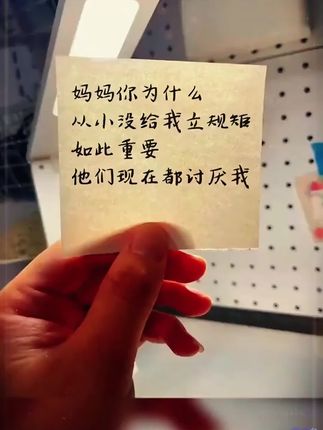 妈妈你为什么
从小没给我立规矩
如此重要
他们现在都讨厌我